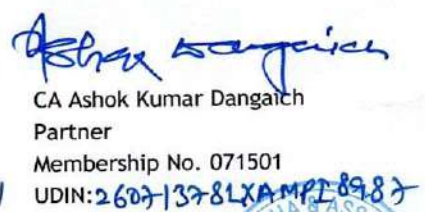 Ashok Dangaich
CA Ashok Kumar Dangaich
Partner
Membership No. 071501
UDIN: 26071378LXAMPI8987
& ASSO